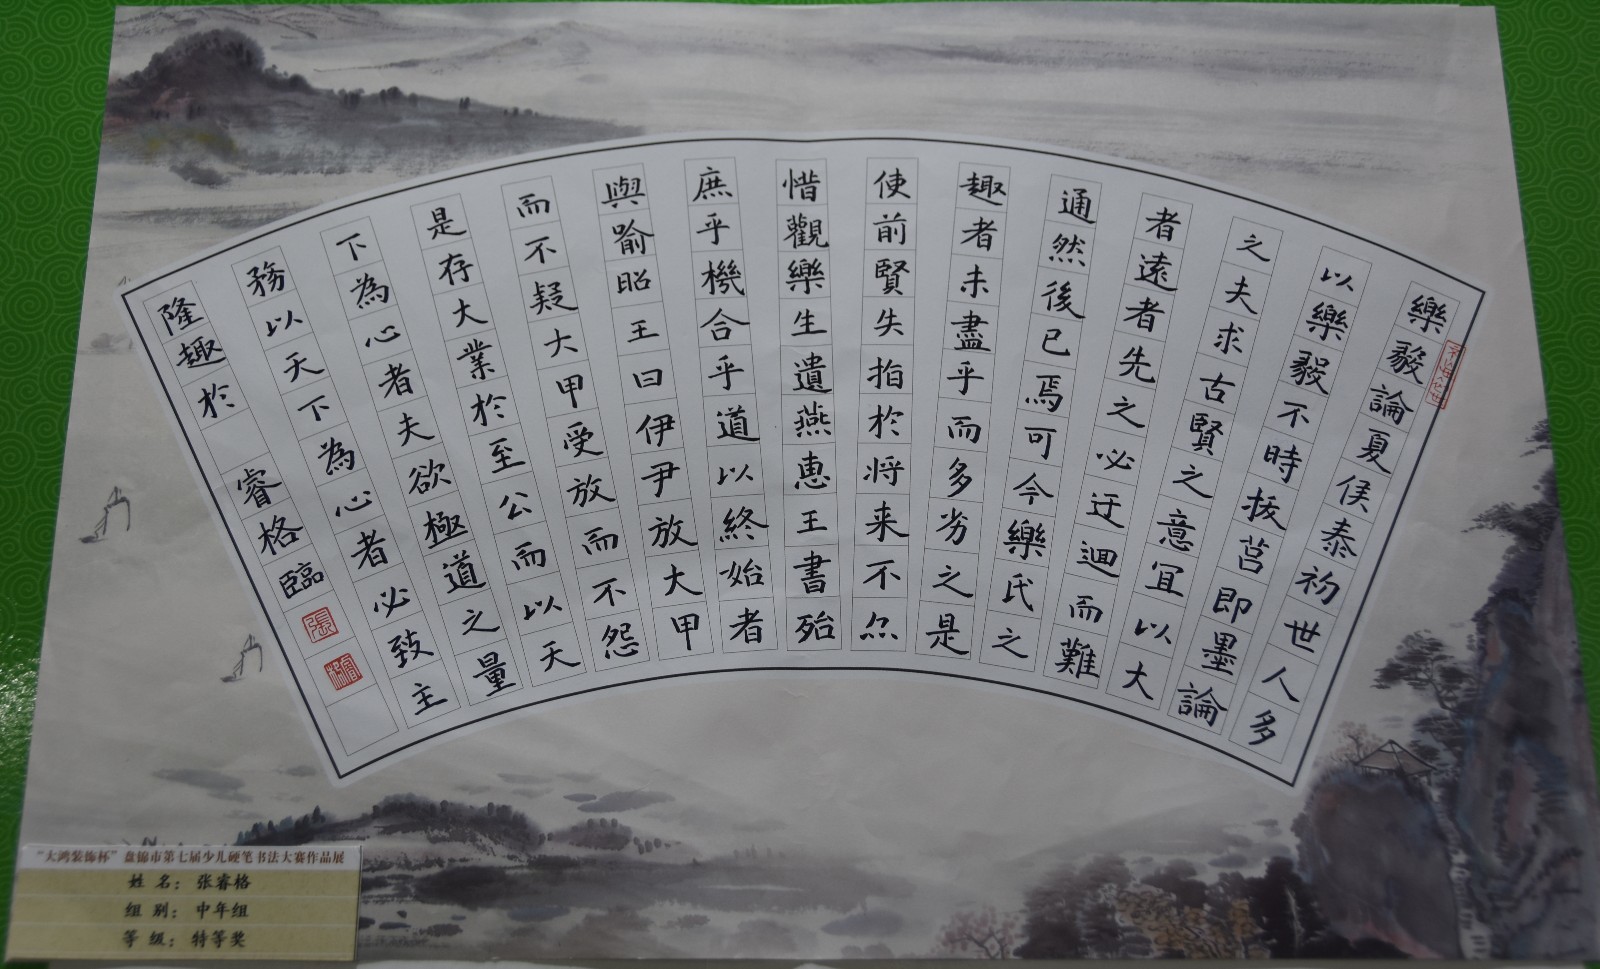 樂毅論夏侯泰初世人多
以樂毅不時拔莒即墨論
之夫求古賢之意宜以大
者遠者先之必迂迴而難
通然後已焉可今樂氏之
趣者未盡乎而多劣之是
使前賢失指於将来不尒
惜觀樂生遺燕惠王書殆
庶乎機合乎道以終始者
與喻昭王曰伊尹放大甲
而不疑大甲受放而不怨
是存大業於至公而以天
下為心者夫欲極道之量
務以天下為心者必致主
隆趣於 睿格臨
張
“大鸿装饰杯”盘锦市第七届少儿硬笔书法大赛作品展
姓 名：张睿格
组 别：中年组
等 级：特等奖